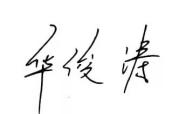 华俊涛